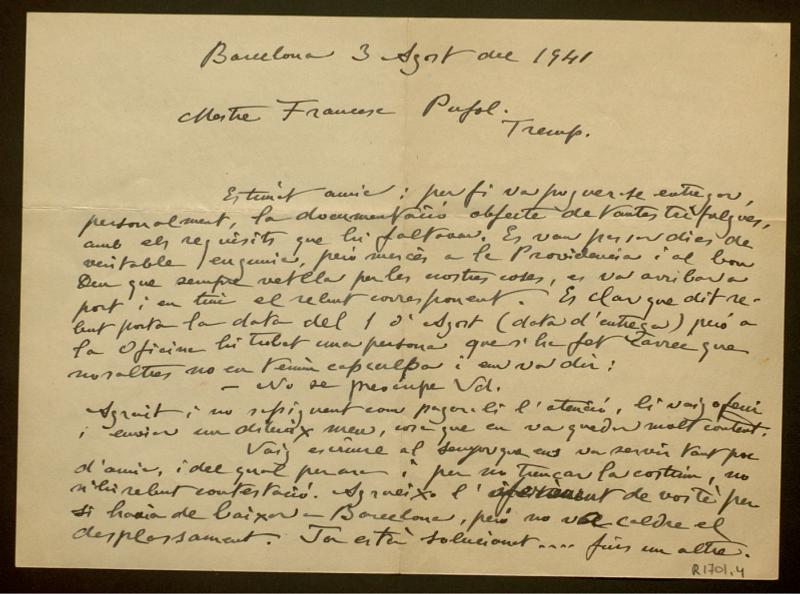 Barcelona 3 Agost del 1941
Mestre Francesc Pujol.
Tremp.
Estimat amic: per fi va poguer-se entregar,
personalment, la documentació objecte de tantes trifulgues,
amb els requisits que hi faltavan. Es van passar dies de
veritable engunia, però mercès a la Providencia i al bon
Deu que sempre vetlla per les nostres coses, es va arribar a
port i en tinc el rebut corresponent. Es clar que dit re-
but porta la data del 1 d'Agost (data d'entrega) però a
la Oficina hi trobat una persona que s'ha fet carrec que
nosaltres no en tenim cap culpa i em va dir:
— No se preocupe Vd.
Agrait i no sapiguent com pagar-li l'atenció, li vaig oferir
i enviar un dibuix meu, cosa que en va quedar molt content.
Vaig escriure al senyor que ens va servir tant poc
d'amic, i del qual per ara i per no trencar la costum, no
n'hi rebut contestació. Agraeixo l'oferiment de vostè per
si havia de baixar a Barcelona, però no val caldre el
desplassament. Ja està solucionat.... fins un altre.
R.1701.4